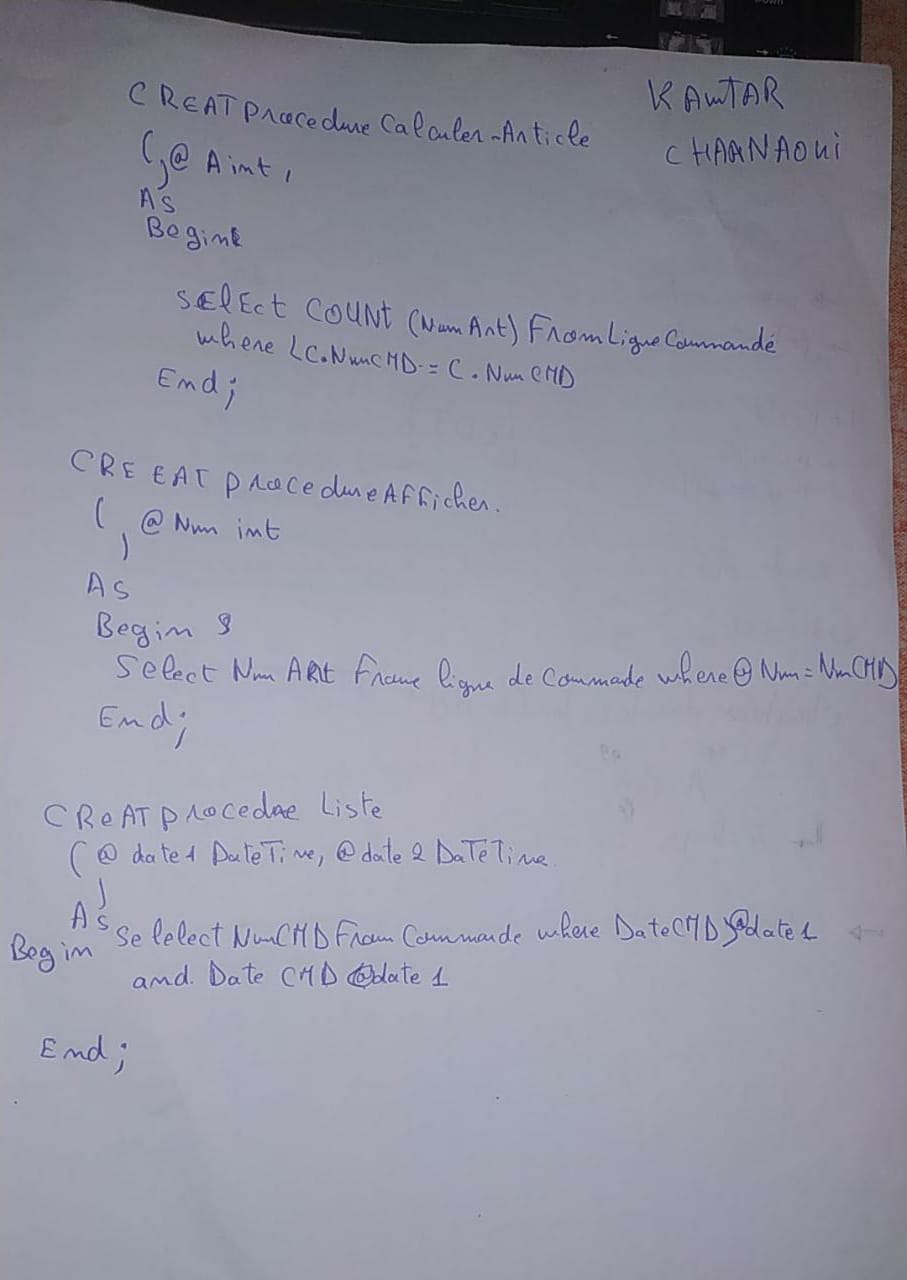 KAWTAR
CHAANAOUI
CREAT procedure Calculer-Article
(,@ A int,
)
As
Begin
SElEct COUNT (Num Art) From Ligne Commandé
where LC.NumCMD = C.Num CMD
End;
CREEAT procedure Afficher.
( @ Num int
)
As
Begin
Select Num ARt Frome ligne de Commade where @ Num = NumCMD
End;
CReAT procedue Liste
(@ date1 DateTime, @date 2 DaTeTime
)
As
Begin Selelect NumCMD From Commande where DateCMD >@date 1
and. Date CMD @date 1
End;